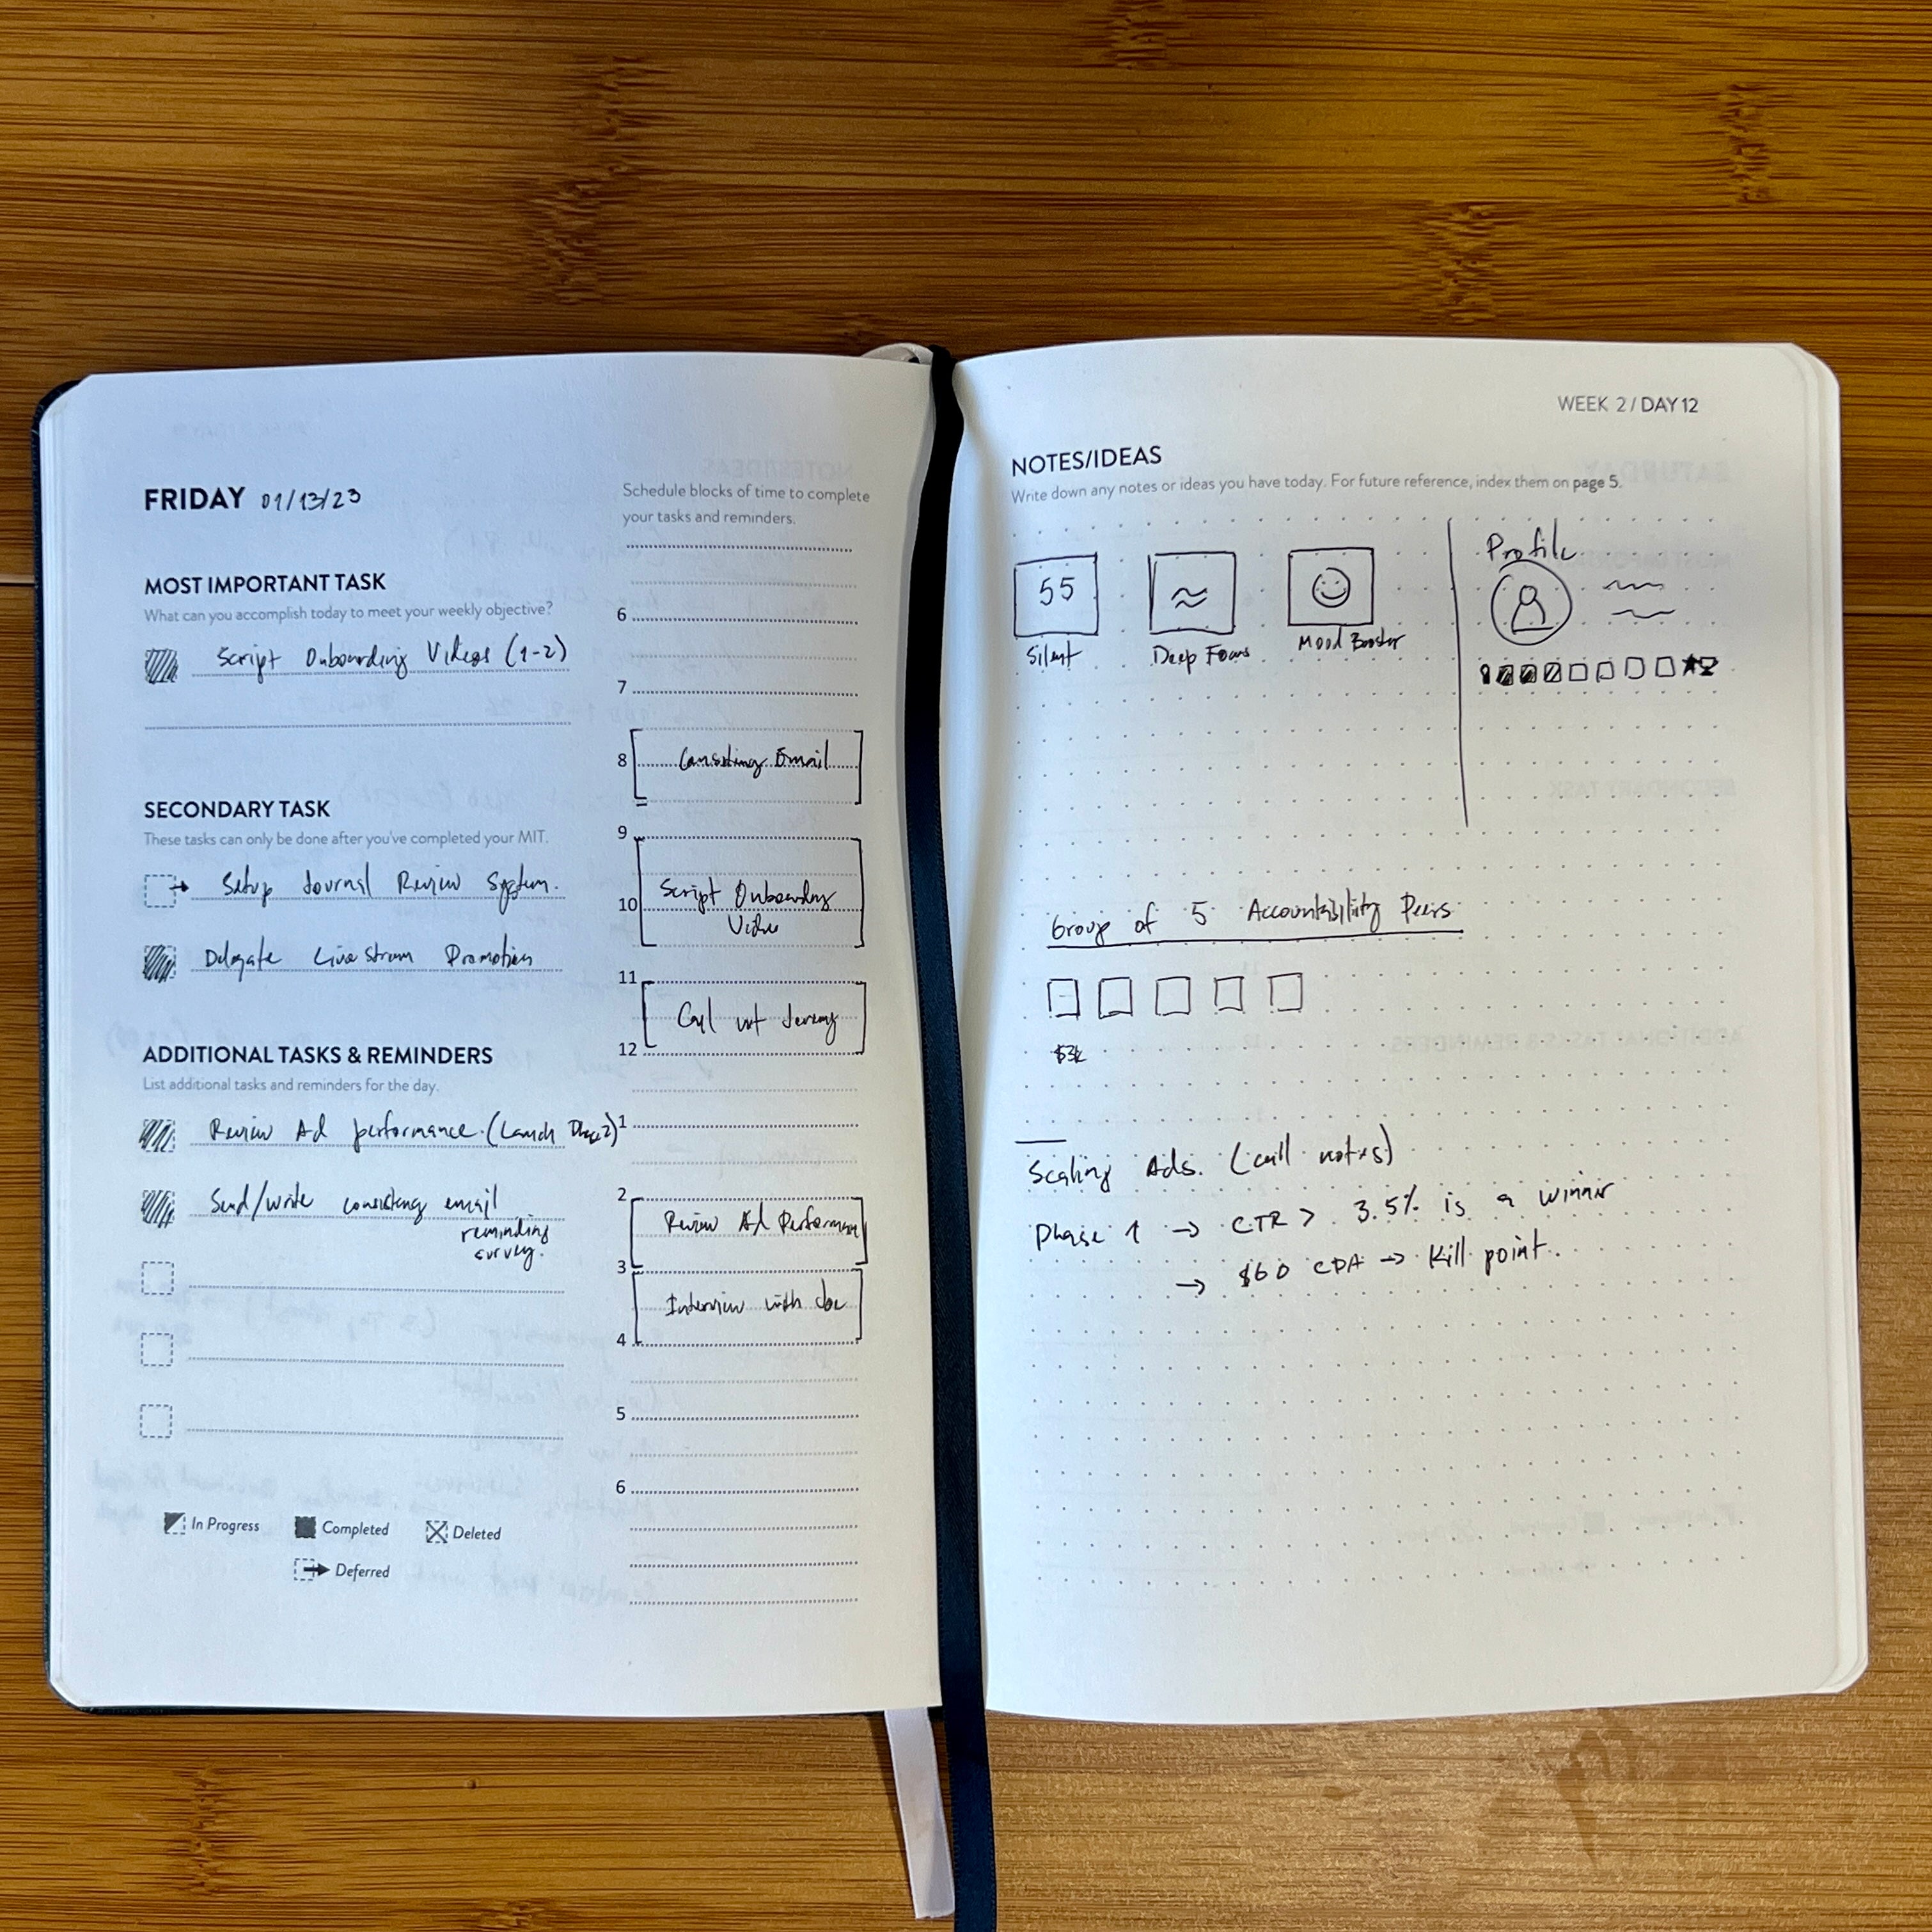 FRIDAY 01/13/23
MOST IMPORTANT TASK
What can you accomplish today to meet your weekly objective?
Script Onboarding Videos (1-2)
SECONDARY TASK
These tasks can only be done after you've completed your MIT.
Setup Journal Review System.
Delegate Live Stream Promotion
ADDITIONAL TASKS & REMINDERS
List additional tasks and reminders for the day.
Review Ad performance. (Launch Phase 2)
Send/write consisting email
reminding
survey.
In Progress
Completed
Deleted
Deferred
Schedule blocks of time to complete
your tasks and reminders.
6
7
8 Email
9
10 Script Onboarding
Video
11
Call Jeremy
12
1
2
Review Ad Performan
3
Interview with Joe
4
5
6
WEEK 2 / DAY 12
NOTES/IDEAS
Write down any notes or ideas you have today. For future reference, index them on page 5.
55
Silent
Deep Focus
Mood Booster
Profile
Group of 5 Accountability Peers
$3k
Scaling Ads. (call notes)
Phase 1 → CTR > 3.5% is a winner
→ $60 CPA → Kill point.